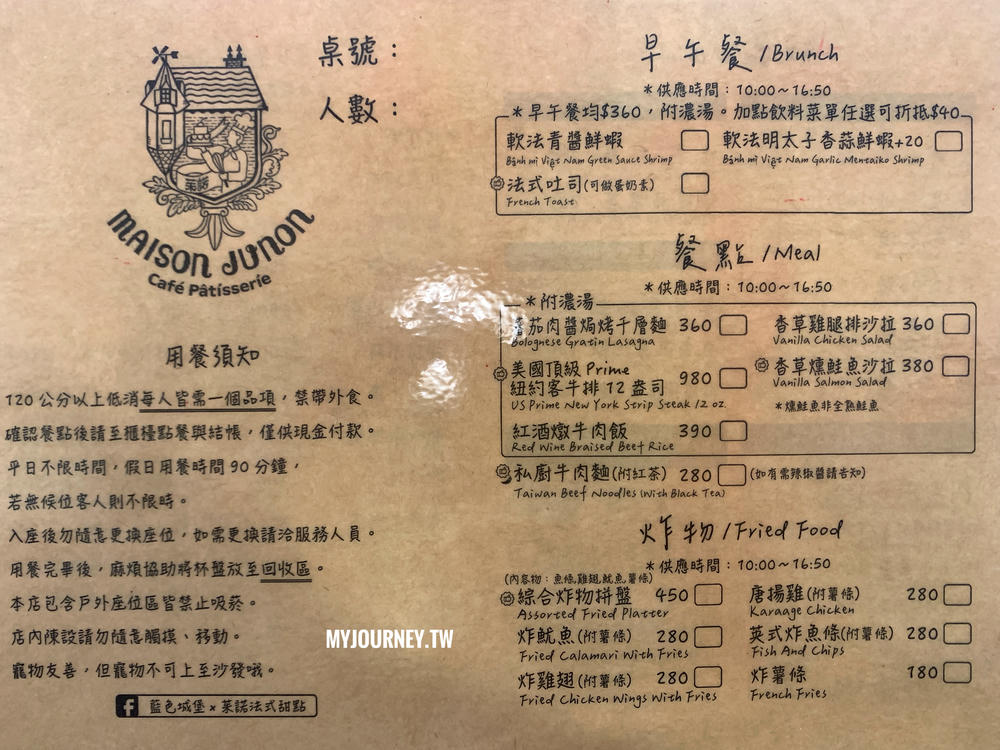 桌號：
人數：
茱諾
MAISON JUNON
Café Pâtisserie
用餐須知
120公分以上低消每人皆需一個品項，禁帶外食。
確認餐點後請至櫃檯點餐與結帳，僅供現金付款。
平日不限時間，假日用餐時間90分鐘，
若無候位客人則不限時。
入座後勿隨意更換座位，如需更換請洽服務人員。
用餐完畢後，麻煩協助將杯盤放至回收區。
本店包含戶外座位區皆禁止吸菸。
店內陳設請勿隨意觸摸、移動。
寵物友善，但寵物不可上至沙發哦。
藍色城堡 × 茱諾法式甜點
MYJOURNEY.TW
早午餐/Brunch
*供應時間：10:00~16:50
*早午餐均$360，附濃湯。加點飲料菜單任選可折抵$40
軟法青醬鮮蝦 軟法明太子香蒜鮮蝦+20
Bánh mì Việt Nam Green Sauce Shrimp Bánh mì Việt Nam Garlic Mentaiko Shrimp
法式吐司(可做蛋奶素)
French Toast
餐點/Meal
*供應時間：10:00~16:50
*附濃湯
番茄肉醬焗烤千層麵 360 香草雞腿排沙拉 360
Bolognese Gratin Lasagna Vanilla Chicken Salad
美國頂級Prime
紐約客牛排12盎司 980 香草燻鮭魚沙拉 380
US Prime New York Strip Steak 12 oz. Vanilla Salmon Salad
*燻鮭魚非全熟鮭魚
紅酒燉牛肉飯 390
Red Wine Braised Beef Rice
私廚牛肉麵(附紅茶) 280 (如有需辣椒醬請告知)
Taiwan Beef Noodles (With Black Tea)
炸物/Fried Food
*供應時間：10:00~16:50
(內容物：魚條,雞翅,魷魚,薯條)
綜合炸物拼盤 450 唐揚雞(附薯條) 280
Assorted Fried Platter Karaage Chicken
炸魷魚(附薯條) 280 英式炸魚條(附薯條) 280
Fried Calamari With Fries Fish And Chips
炸雞翅(附薯條) 280 炸薯條 180
Fried Chicken Wings With Fries French Fries